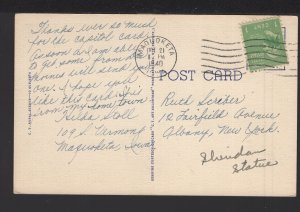 Thanks ever so much
for the capitol card.
As soon as I am able
to get some from our
homes will send
one. I hope you'll
like this card. It is
from "My home town"
Hilda Stoll
109 S. Vermont
Maquoketa, Iowa
MAQUOKETA
21
PM
1940
POST CARD
Ruth Scraber
12 Fairfield Avenue
Albany, New York.
Sheridan
Statue